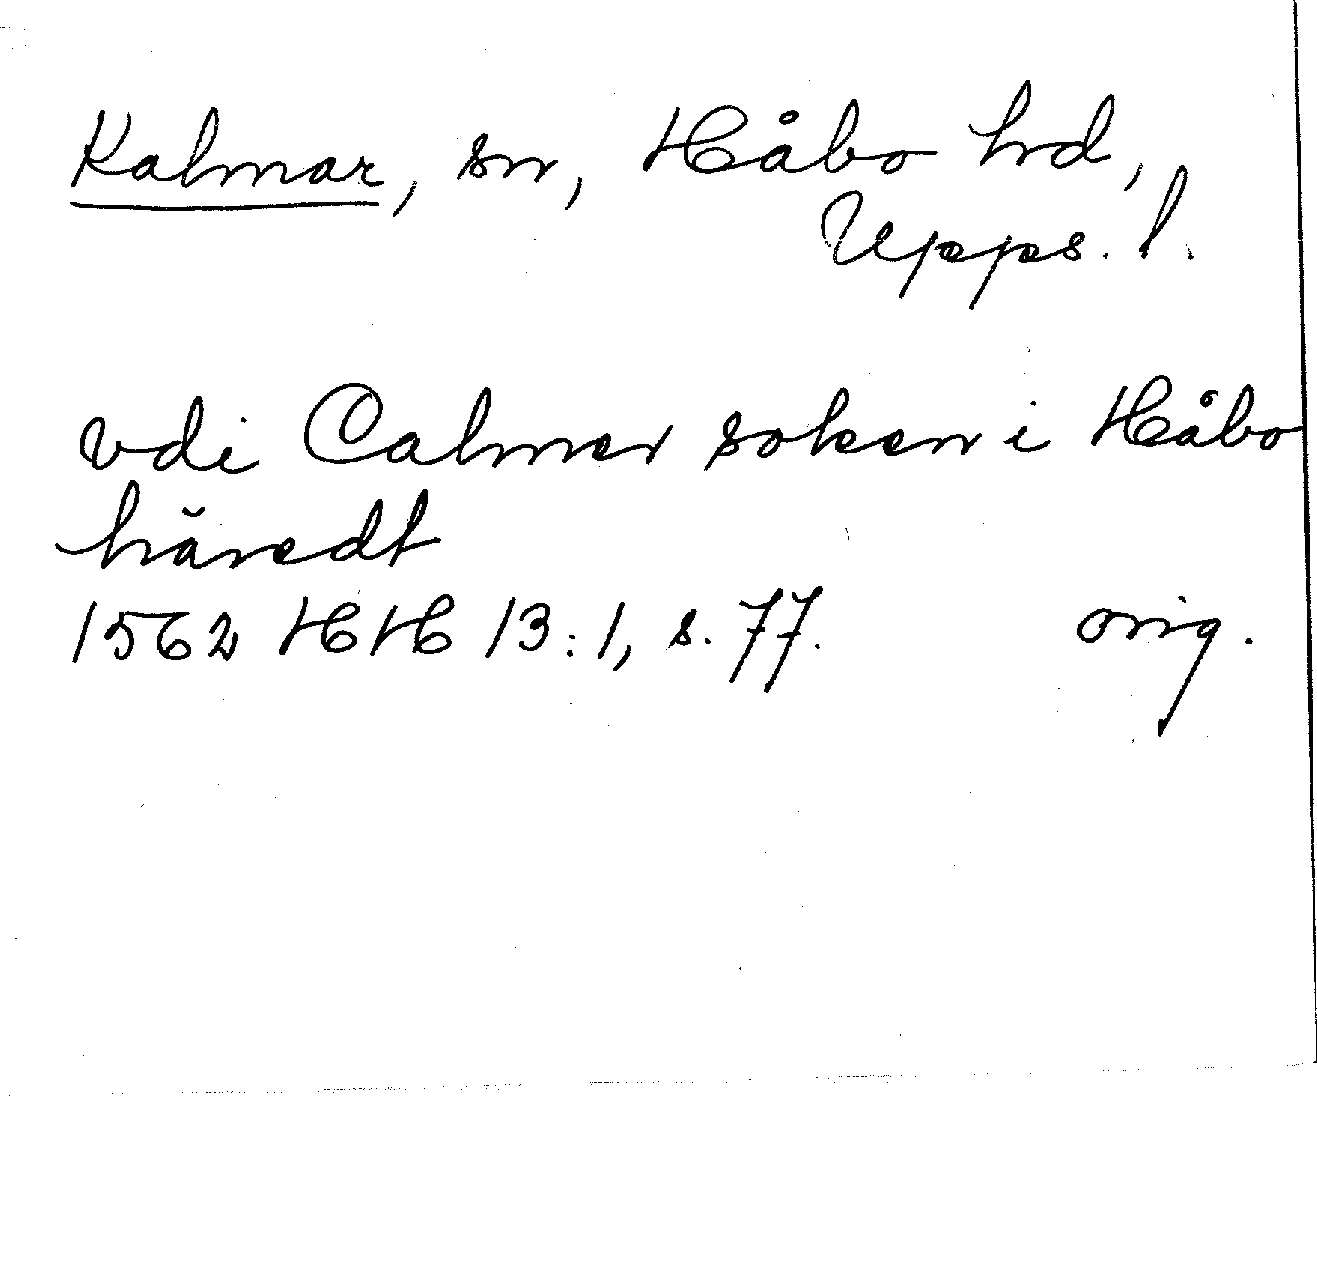 Kalmar, sn, Håbo hd,
Upps. l.
vdi Calmer soken i Håbo
häredt
1562 HH 13:1, s. 77. orig.